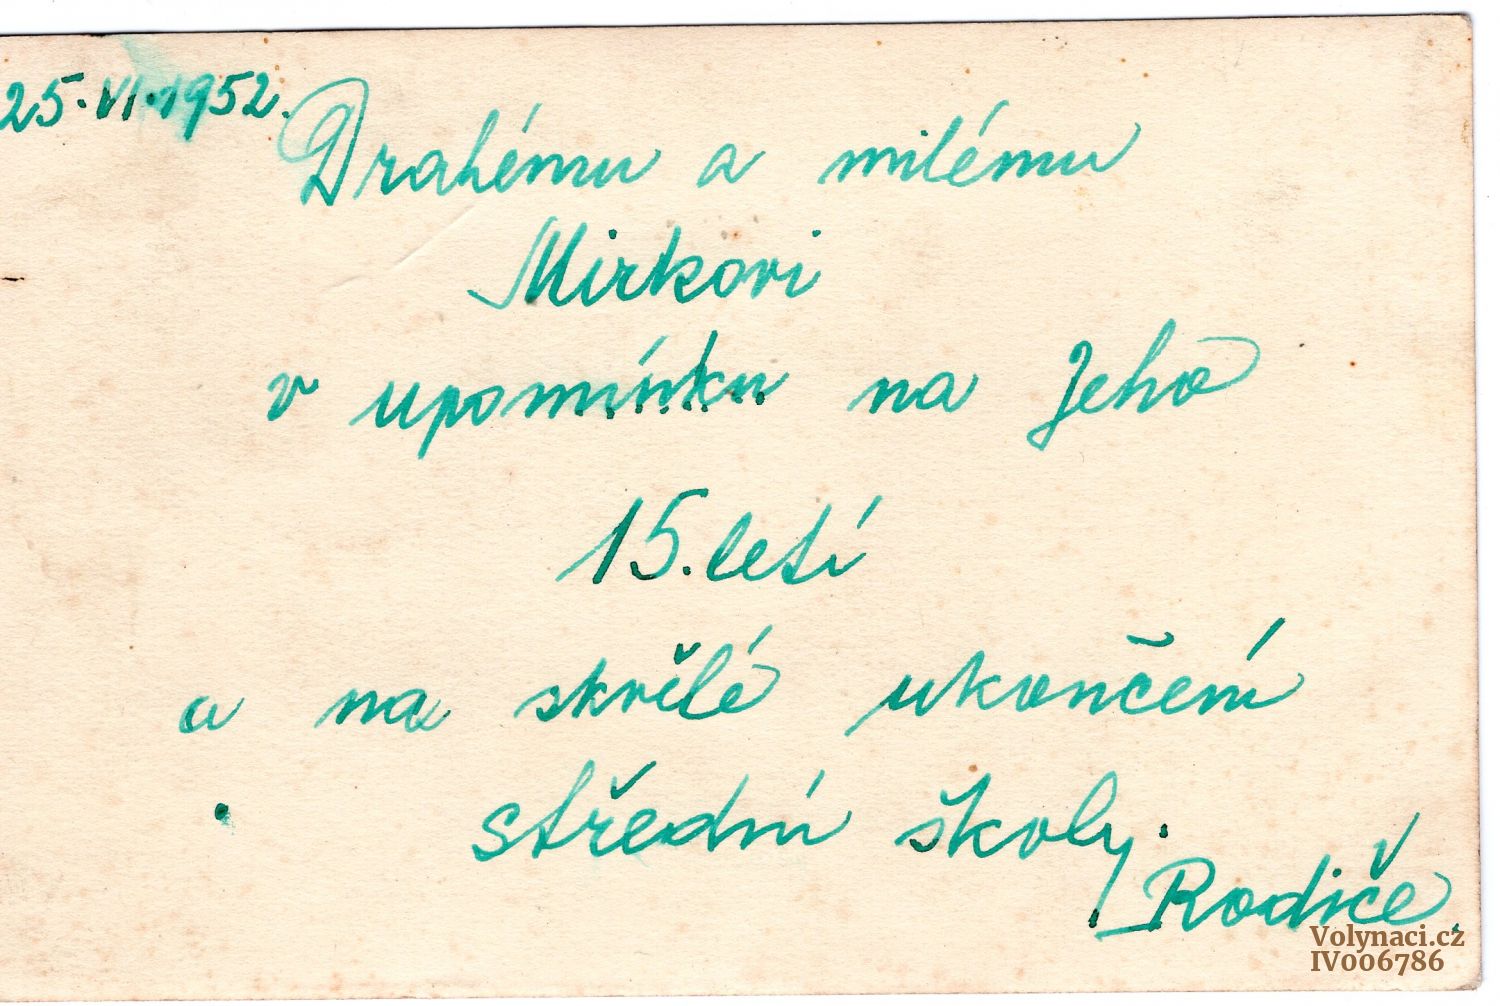 25.VI.1952.
Drahému a milému
Mirkovi
v upomínku na Jeho
15.letí
a na skvělé ukončení
střední školy.
Rodiče.
Volynaci.cz
IV006786